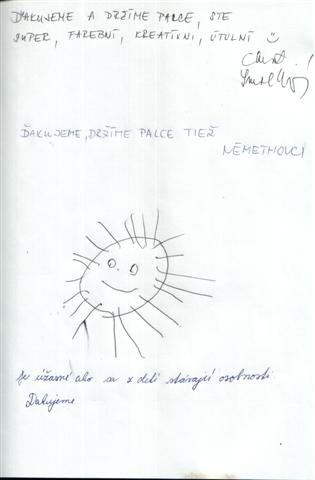 ĎAKUJEME A DRŽÍME PALCE, STE
SUPER, FAREBNÍ, KREATÍVNI, ÚTULNÍ
ĎAKUJEME, DRŽÍME PALCE TIEŽ
NÉMETHOVCI
je úžasné ako sa z detí stávajú osobnosti.
Ďakujeme